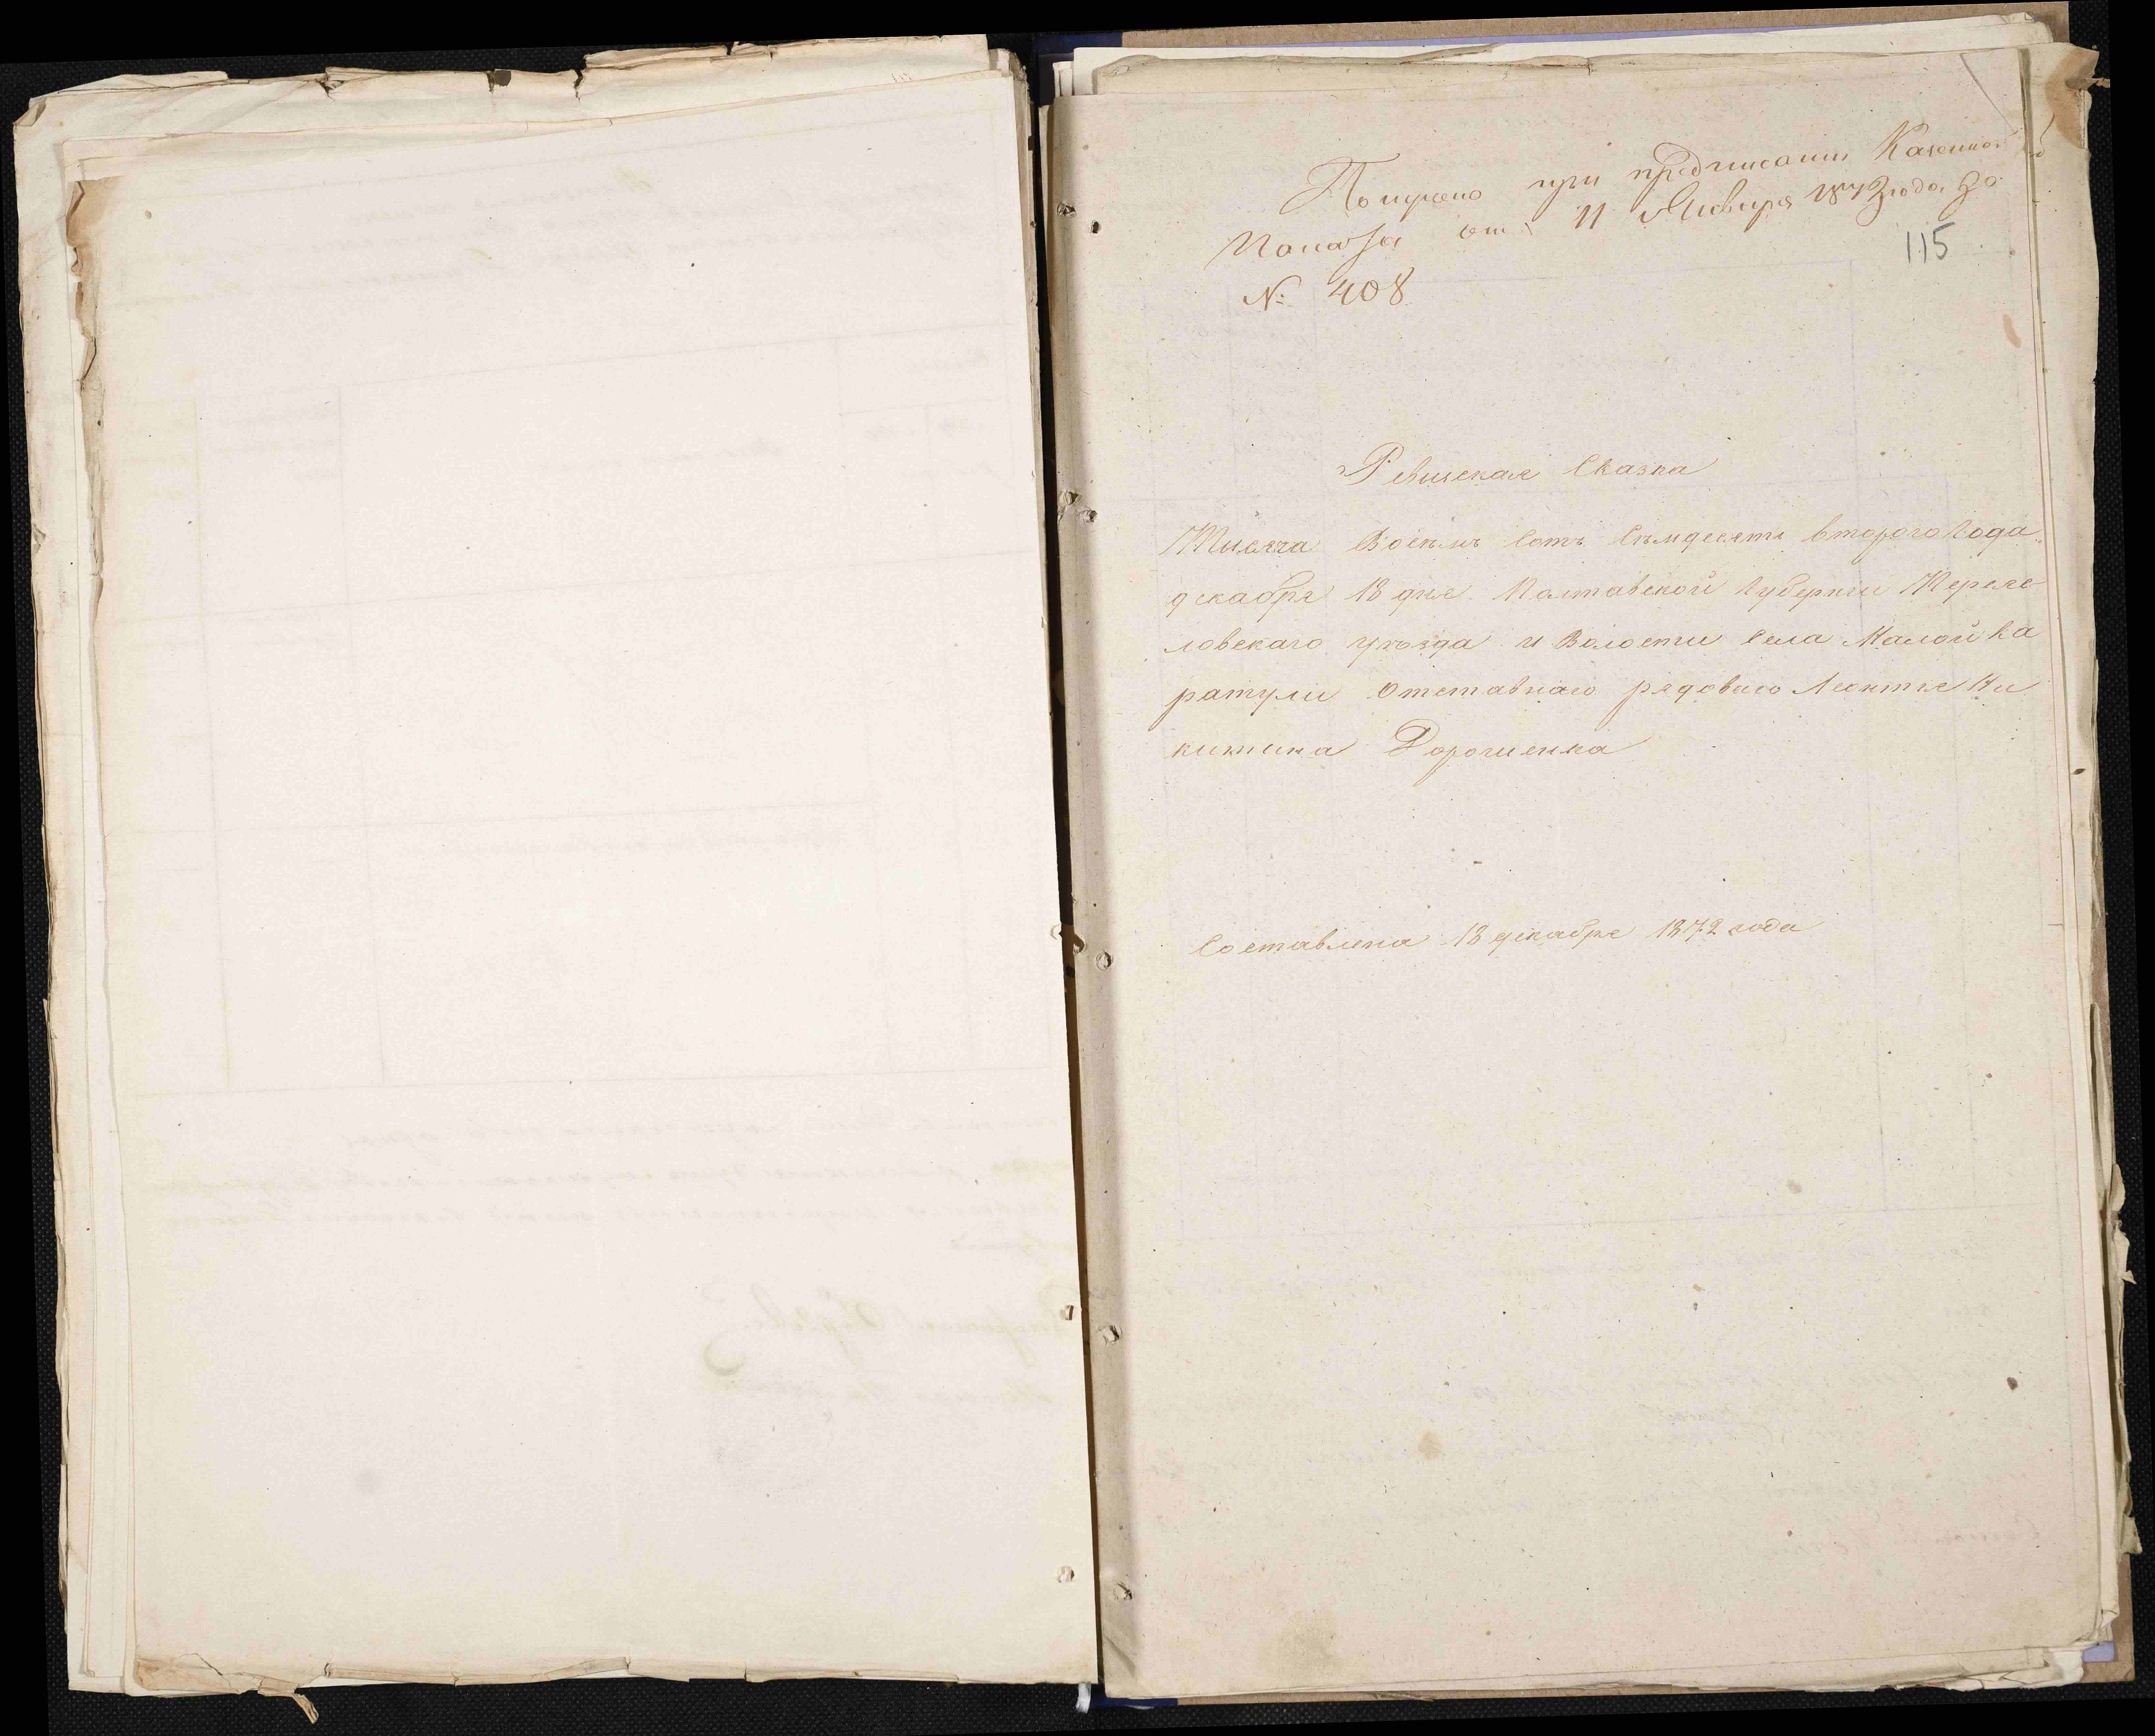 Получено при предписании Казенной
Палаты от 11 Января 1873 года за
115
№ 408
Ревизская Сказка
Тысяча Восемъ Сотъ Семдесятъ второго Года
декабря 18 дня Полтавской Губернии Переяс
ловскаго уѣзда и Волости Села Малой Ка
ратули отставнаго рядоваго Леонтия Ни
китина Дорошенка
Составлена 18 декабря 1872 года